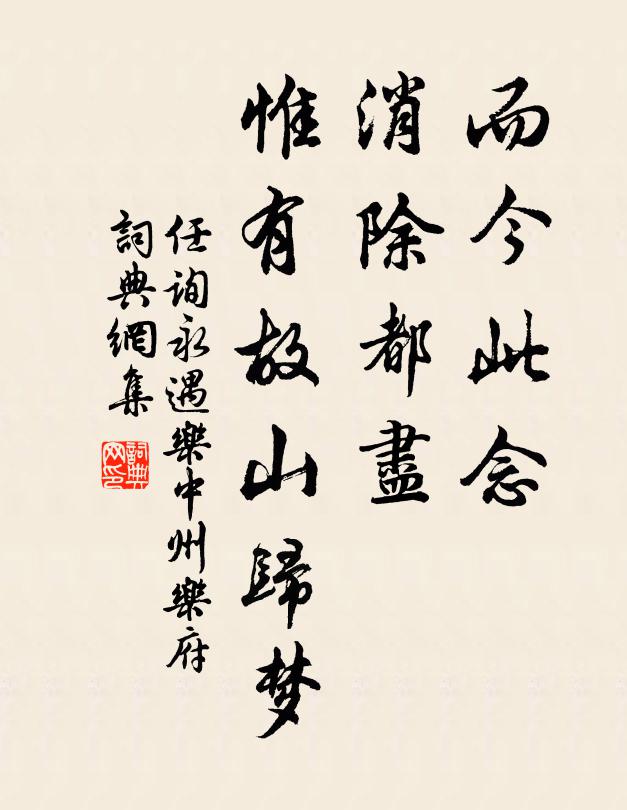 而今此念
消除都盡
惟有故山歸梦
任询永遇樂中州樂府
詞典網集
詞典網印